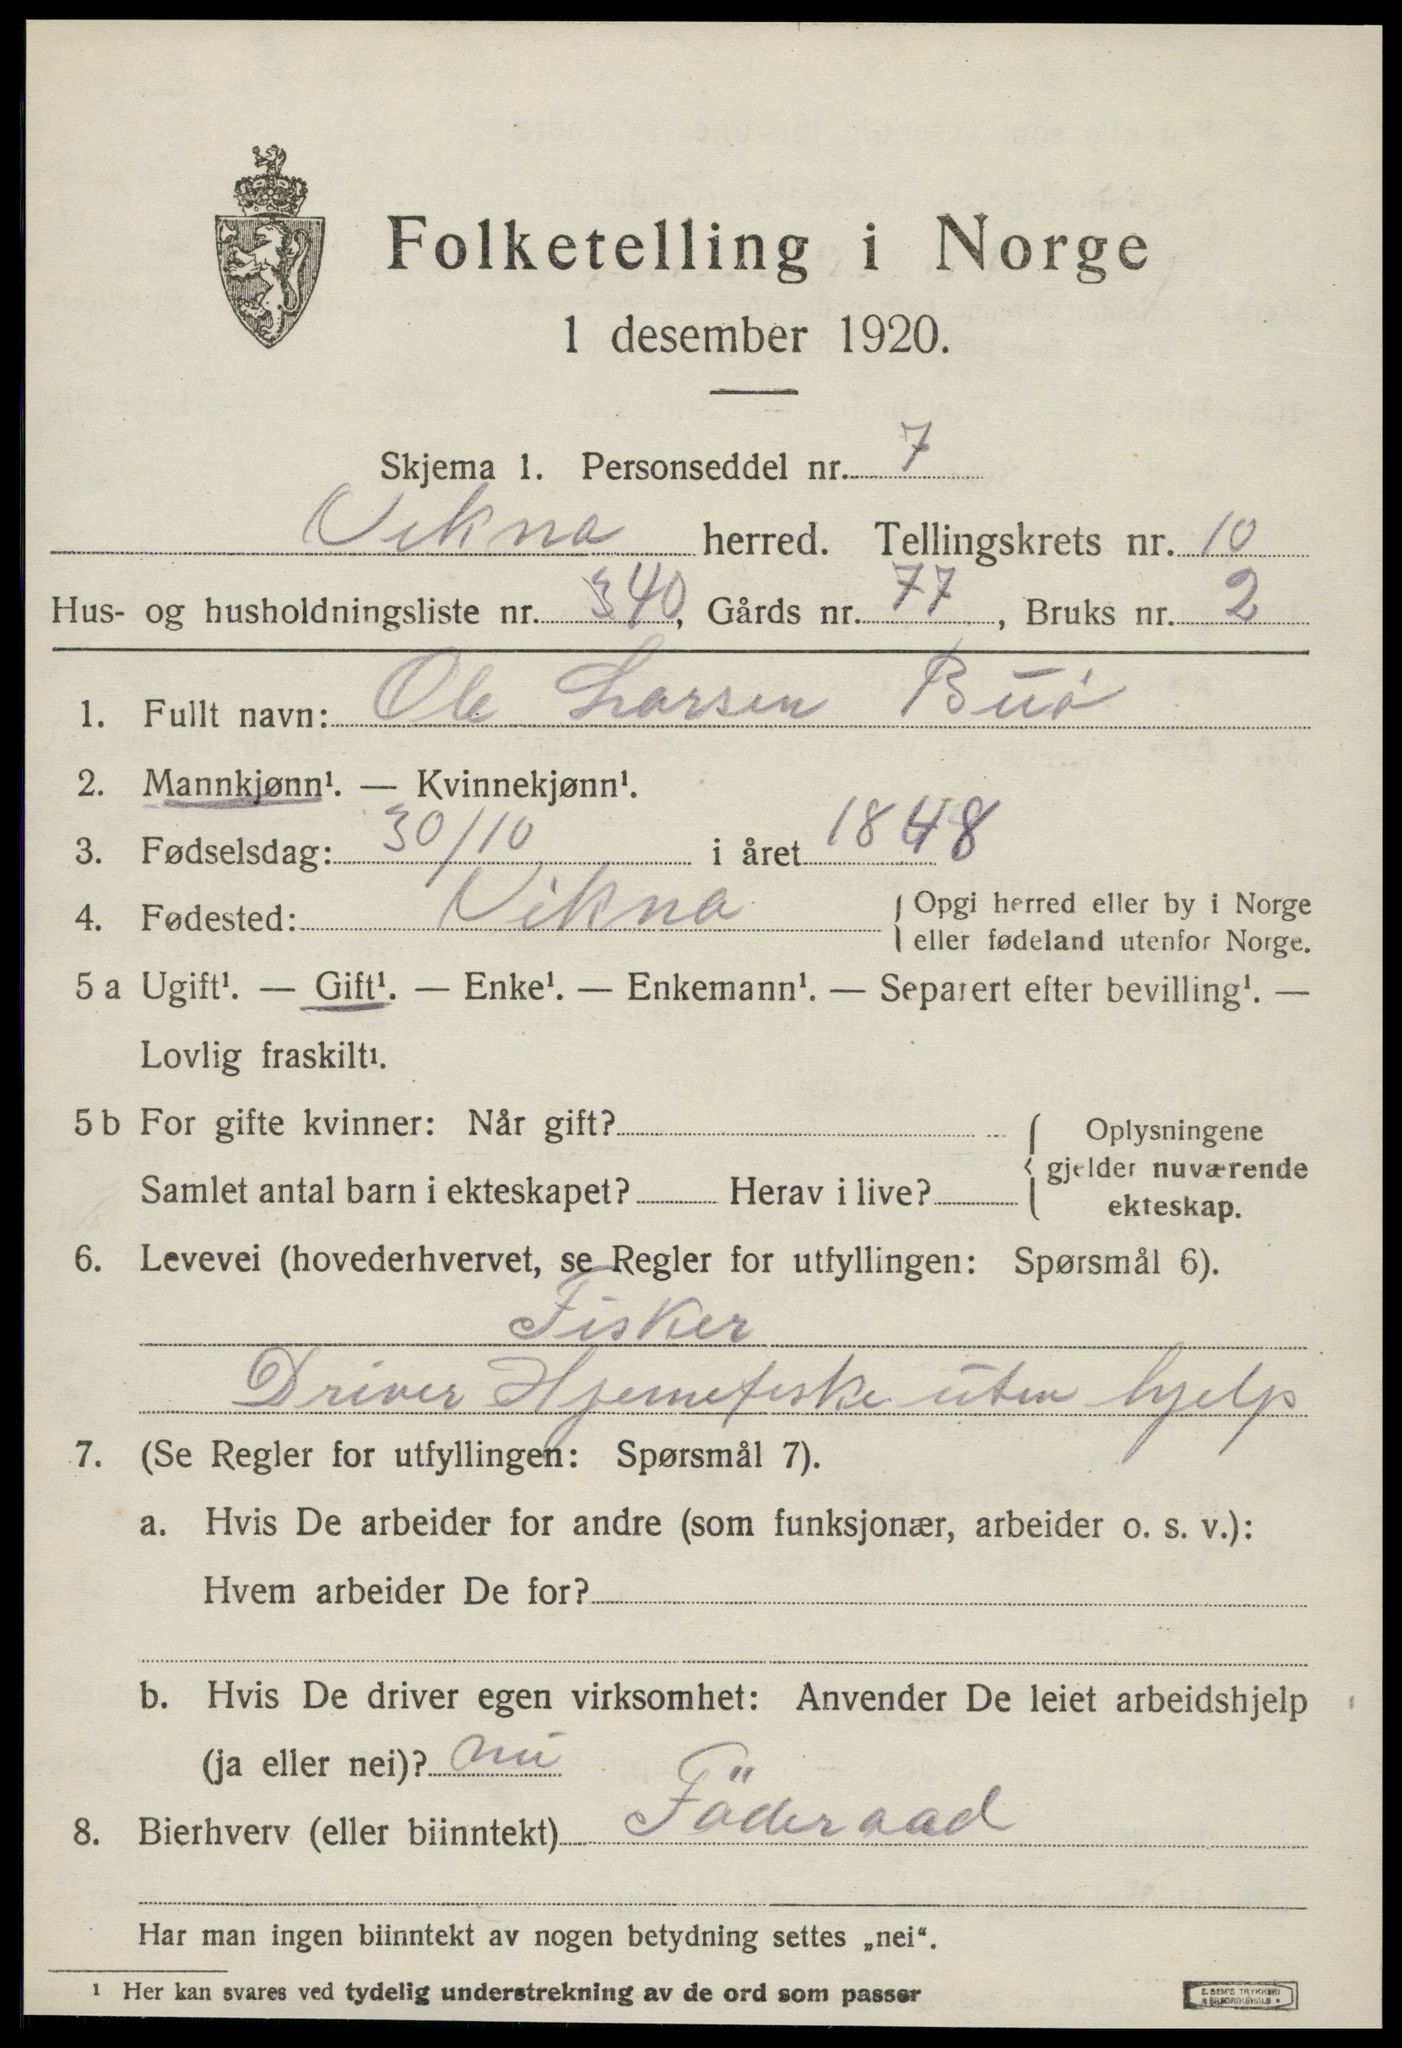 Folketelling i Norge
1 desember 1920.
Skjema 1. Personseddel nr. 7
Vikna herred. Tellingskrets nr. 10
Hus- og husholdningsliste nr. 340, Gårds nr. 77, Bruks nr. 2
1. Fullt navn: Ole Larsen Buö
2. Mannkjønn¹. — Kvinnekjønn¹.
3. Fødselsdag: 30/10 i året 1848
4. Fødested: Vikna
Opgi herred eller by i Norge
eller fødeland utenfor Norge.
5 a Ugift¹. — Gift¹. — Enke¹. — Enkemann¹. — Separert efter bevilling¹. —
Lovlig fraskilt¹.
5 b For gifte kvinner: Når gift?
Samlet antal barn i ekteskapet? Herav i live?
Oplysningene
gjelder nuværende
ekteskap.
6. Levevei (hovederhvervet, se Regler for utfyllingen: Spørsmål 6).
Fisker
Driver Hjemefiske uten hjelp
7. (Se Regler for utfyllingen: Spørsmål 7).
a. Hvis De arbeider for andre (som funksjonær, arbeider o. s. v.):
Hvem arbeider De for?
b. Hvis De driver egen virksomhet: Anvender De leiet arbeidshjelp
(ja eller nei)? nei
8. Bierhverv (eller biinntekt) Föderaad
Har man ingen biinntekt av nogen betydning settes „nei“.
¹ Her kan svares ved tydelig understrekning av de ord som passer